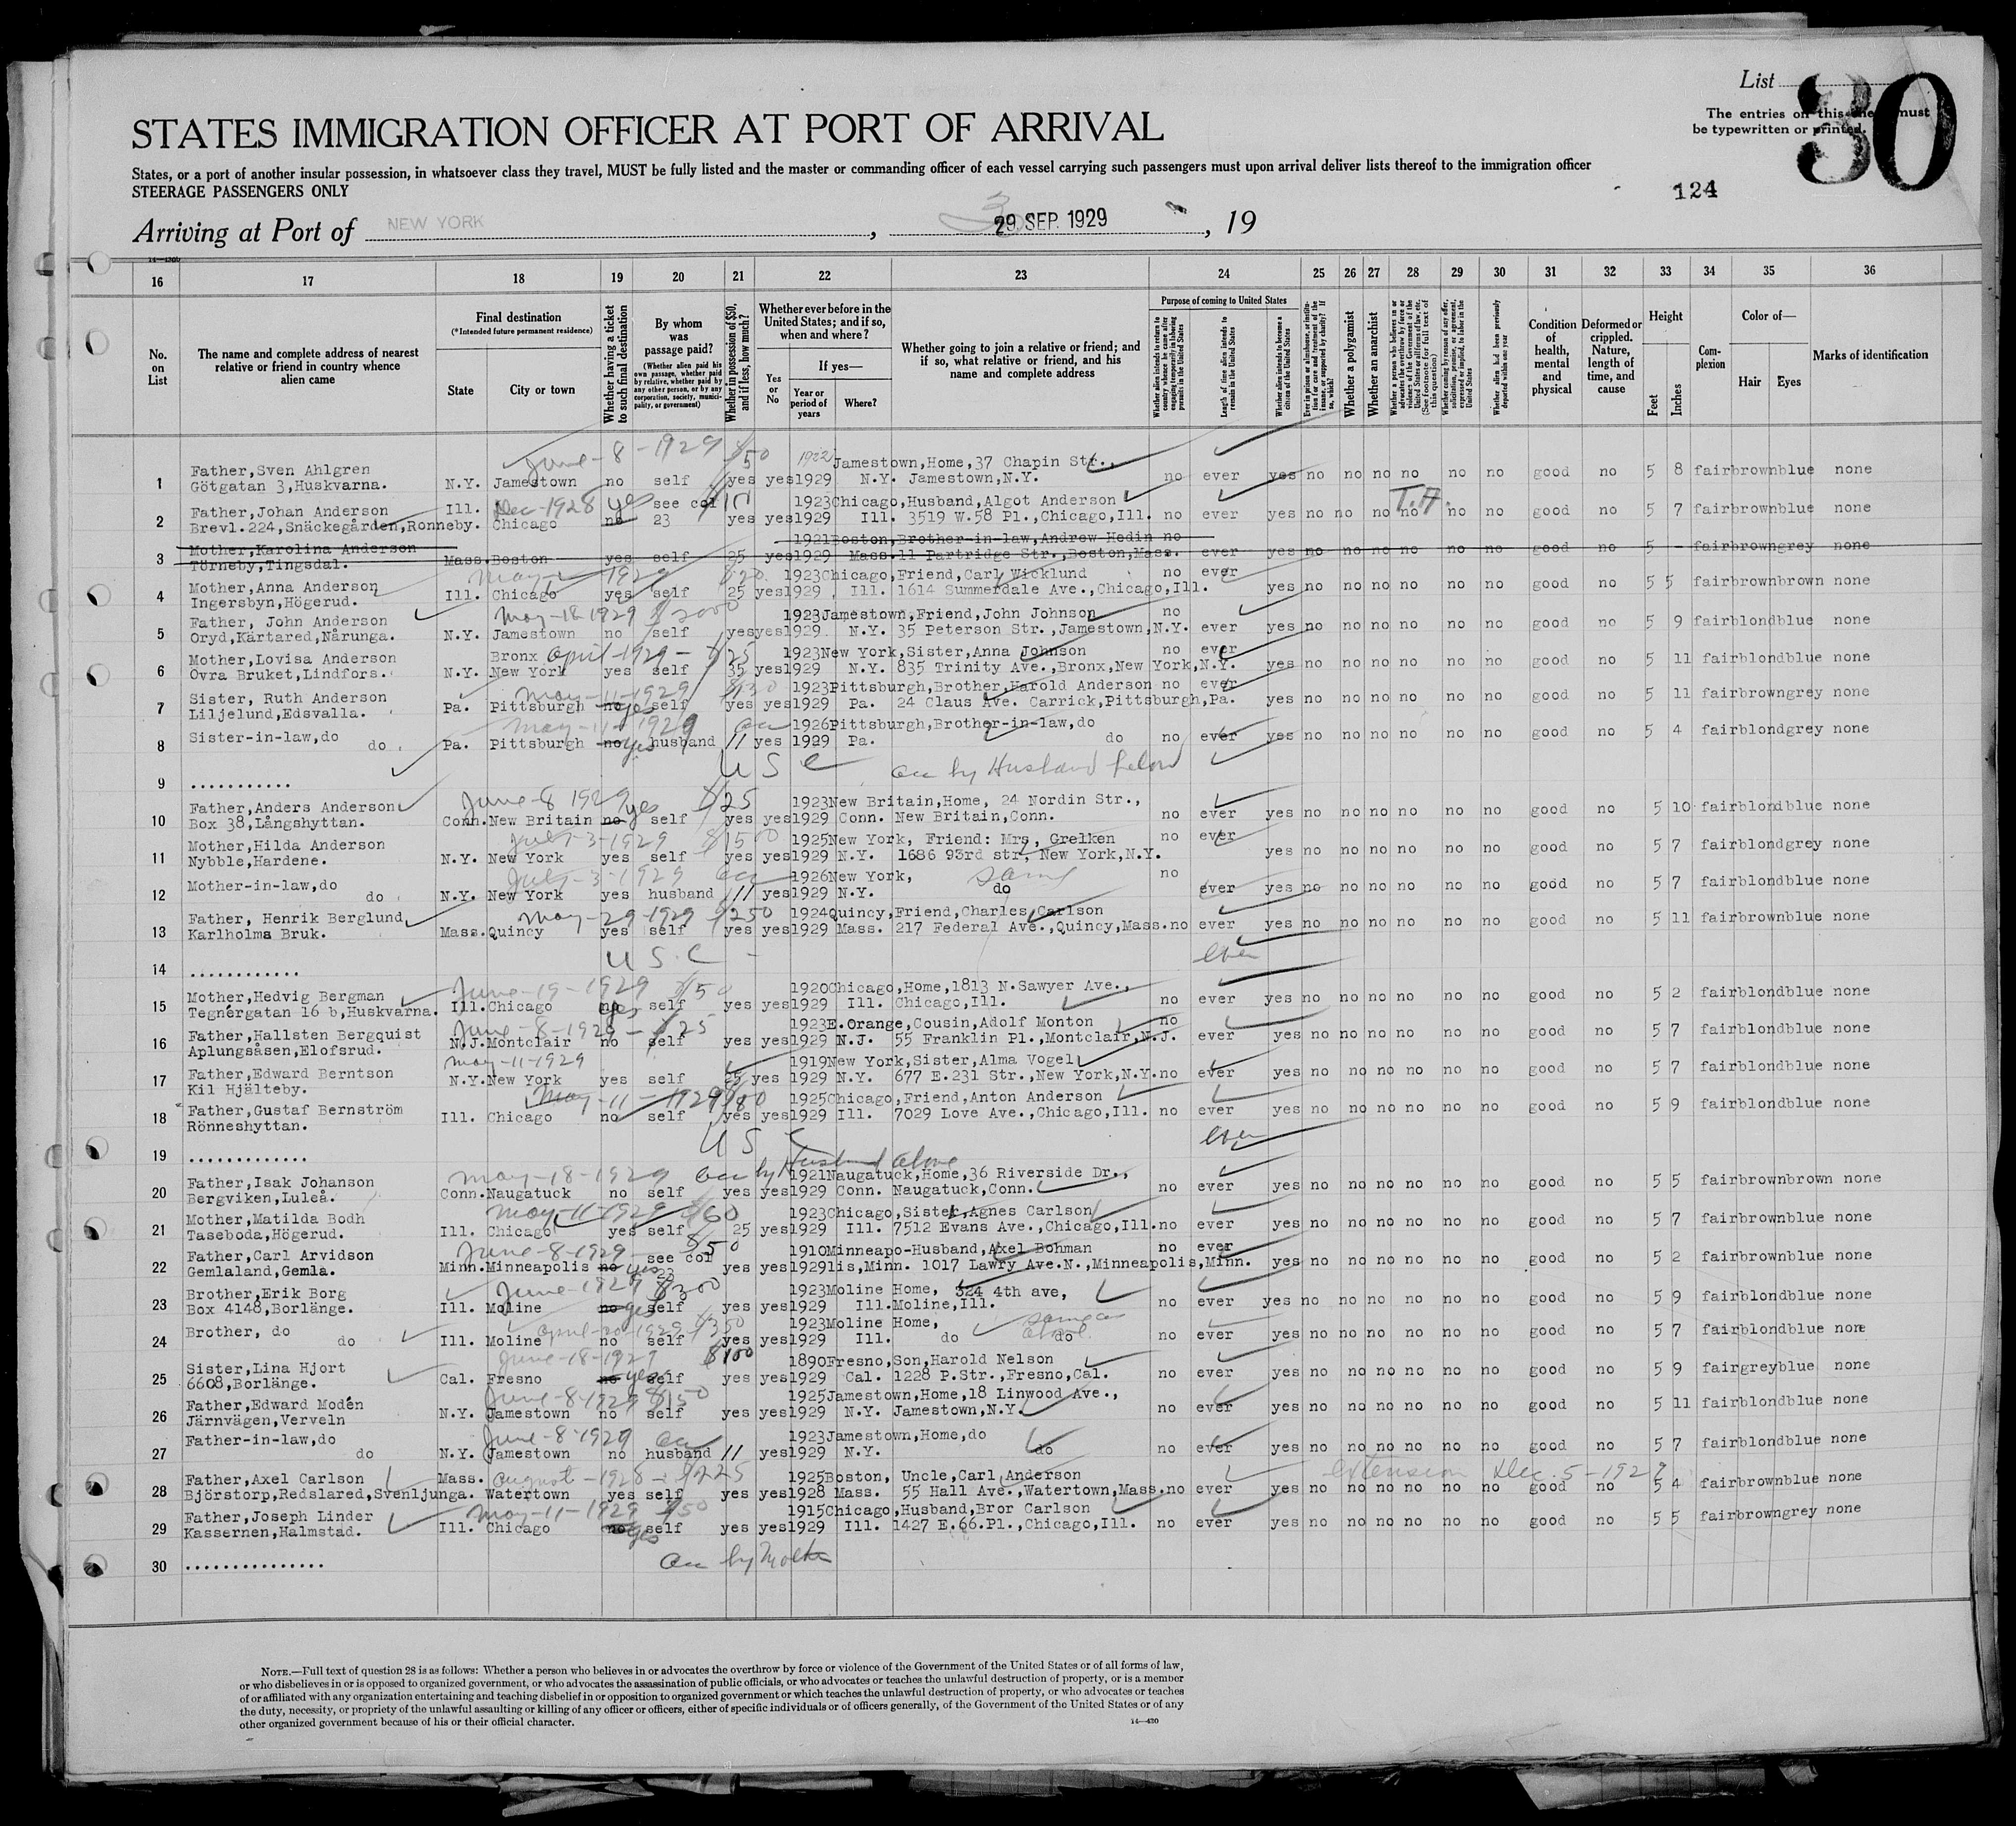 List
30
The entries on this sheet must
be typewritten or printed.
STATES IMMIGRATION OFFICER AT PORT OF ARRIVAL
States, or a port of another insular possession, in whatsoever class they travel, MUST be fully listed and the master or commanding officer of each vessel carrying such passengers must upon arrival deliver lists thereof to the immigration officer
STEERAGE PASSENGERS ONLY
124
Arriving at Port of NEW YORK, 29 SEP. 1929, 19
16 17 18 19 20 21 22 23 24 25 26 27 28 29 30 31 32 33 34 35 36
No. on List
The name and complete address of nearest relative or friend in country whence alien came
Final destination
(*Intended future permanent residence)
State
City or town
Whether having a ticket to such final destination
By whom was passage paid?
(Whether alien paid his own passage, whether paid by relative, whether paid by any other person, or by any corporation, society, municipality, or government)
Whether in possession of $50, and if less, how much?
Whether ever before in the United States; and if so, when and where?
Yes or No
If yes—
Year or period of years
Where?
Whether going to join a relative or friend; and if so, what relative or friend, and his name and complete address
Purpose of coming to United States
Whether alien intends to return to country whence he came after engaging temporarily in laboring pursuits in the United States
Length of time alien intends to remain in the United States
Whether alien intends to become a citizen of the United States
Whether a polygamist
Whether an anarchist
Whether alien had been previously deported within one year
Condition of health, mental and physical
Deformed or crippled. Nature, length of time, and cause
Height
Feet
Inches
Complexion
Color of—
Hair
Eyes
Marks of identification
June-8-1929 $150 1922 Jamestown,Home,37 Chapin Str.,
1 Father,Sven Ahlgren
Götgatan 3,Huskvarna. N.Y. Jamestown no self yes yes 1929 N.Y. Jamestown,N.Y. no ever yes no no no no no no good no 5 8 fair brown blue none
2 Father,Johan Anderson Ill. Dec-1928 yes see col 1923 Chicago,Husband,Algot Anderson T.H.
Brevl.224,Snäckegården,Ronneby. Chicago no 23 yes yes 1929 Ill. 3519 W.58 Pl.,Chicago,Ill. no ever yes no no no no no no good no 5 7 fair brown blue none
3 Mother,Karolina Anderson 1921 Boston,Brother-in-law,Andrew Hedin no
Törneby,Tingsdal. Mass. Boston yes self 25 yes 1929 Mass. 11 Partridge Str.,Boston,Mass. ever yes no no no no no no good no 5 - fair brown grey none
4 Mother,Anna Anderson May 1929 1923 Chicago,Friend,Carl Wicklund no ever
Ingersbyn,Högerud. Ill. Chicago yes self 25 yes 1929 Ill. 1614 Summerdale Ave.,Chicago,Ill. yes no no no no no no good no 5 5 fair brown brown none
5 Father, John Anderson May-18-1929 $2000 1923 Jamestown,Friend,John Johnson no
Oryd,Kärtared,Nårunga. N.Y. Jamestown no self yes yes 1929 N.Y. 35 Peterson Str.,Jamestown,N.Y. ever yes no no no no no no good no 5 9 fair blond blue none
6 Mother,Lovisa Anderson Bronx April-1929- $25 1923 New York,Sister,Anna Johnson no ever
Ovra Bruket,Lindfors. N.Y. New York yes self 35 yes 1929 N.Y. 835 Trinity Ave.,Bronx,New York,N.Y. yes no no no no no no good no 5 11 fair blond blue none
7 Sister, Ruth Anderson May-11-1929 $130 1923 Pittsburgh,Brother,Harold Anderson no ever
Liljelund,Edsvalla. Pa. Pittsburgh no yes self yes yes 1929 Pa. 24 Claus Ave. Carrick,Pittsburgh,Pa. yes no no no no no no good no 5 11 fair brown grey none
8 Sister-in-law,do May-11-1929 1926 Pittsburgh,Brother-in-law,do
do Pa. Pittsburgh no yes husband // yes 1929 Pa. do no ever yes no no no no no no good no 5 4 fair blond grey none
9 ........... U S C acc by Husband below
10 Father,Anders Anderson June-8 1929 yes $25 1923 New Britain,Home, 24 Nordin Str.,
Box 38,Långshyttan. Conn. New Britain no self yes yes 1929 Conn. New Britain,Conn. no ever yes no no no no no no good no 5 10 fair blond blue none
11 Mother,Hilda Anderson July-3-1929 $1500 1925 New York, Friend: Mrs, Grelken no ever
Nybble,Hardene. N.Y. New York yes self yes yes 1929 N.Y. 1686 93rd str, New York,N.Y. yes no no no no no no good no 5 7 fair blond grey none
12 Mother-in-law,do July-3-1929 1926 New York, same no
do N.Y. New York yes husband // yes 1929 N.Y. do ever yes no no no no no no good no 5 7 fair blond blue none
13 Father, Henrik Berglund May-29-1929 $250 1924 Quincy,Friend,Charles Carlson
Karlholms Bruk. Mass. Quincy yes self yes yes 1929 Mass. 217 Federal Ave.,Quincy,Mass. no ever yes no no no no no no good no 5 11 fair brown blue none
14 ............ U S. C - ever
15 Mother,Hedvig Bergman June-19-1929 $150 1920 Chicago,Home,1813 N.Sawyer Ave.,
Tegnérgatan 16 b,Huskvarna. Ill. Chicago no yes self yes yes 1929 Ill. Chicago,Ill. no ever yes no no no no no no good no 5 2 fair blond blue none
16 Father,Hallsten Bergquist June-8-1929- $25 1923 E.Orange,Cousin,Adolf Monton no
Aplungsåsen,Elofsrud. N.J. Montclair no self yes yes 1929 N.J. 55 Franklin Pl.,Montclair,N.J. ever yes no no no no no no good no 5 7 fair blond blue none
17 Father,Edward Berntson May-11-1929 1919 New York,Sister,Alma Vogel
Kil Hjälteby. N.Y. New York yes self 25 yes 1929 N.Y. 677 E.231 Str.,New York,N.Y. no ever yes no no no no no no good no 5 7 fair blond blue none
18 Father,Gustaf Bernström May-11-1929 1925 Chicago,Friend,Anton Anderson
Rönneshyttan. Ill. Chicago no self yes yes 1929 Ill. 7029 Love Ave.,Chicago,Ill. no ever yes no no no no no no good no 5 9 fair blond blue none
19 ............. U S C ever
acc by Husband above
20 Father,Isak Johanson May-18-1929 1921 Naugatuck,Home,36 Riverside Dr.,
Bergviken,Luleå. Conn. Naugatuck no self yes yes 1929 Conn. Naugatuck,Conn. no ever yes no no no no no no good no 5 5 fair brown brown none
21 Mother,Matilda Bodh May-11-1929 $60 1923 Chicago,Sister,Agnes Carlson
Taseboda,Högerud. Ill. Chicago yes self 25 yes 1929 Ill. 7512 Evans Ave.,Chicago,Ill. no ever yes no no no no no no good no 5 7 fair brown blue none
22 Father,Carl Arvidson June-8-1929 see col $50 1910 Minneapo-Husband,Axel Bohman no ever
Gemlaland,Gemla. Minn. Minneapolis no yes 23 yes yes 1929 lis,Minn. 1017 Lawry Ave.N.,Minneapolis,Minn. yes no no no no no no good no 5 2 fair brown blue none
23 Brother,Erik Borg June-1929 $300 1923 Moline Home, 324 4th ave,
Box 4148,Borlänge. Ill. Moline no yes self yes yes 1929 Ill. Moline,Ill. no ever yes no no no no no no good no 5 9 fair blond blue none
24 Brother, do April-20-1929 $350 1923 Moline Home, same as above
do Ill. Moline no self yes yes 1929 Ill. do do no ever yes no no no no no no good no 5 7 fair blond blue none
25 Sister,Lina Hjort June-18-1929 $100 1890 Fresno,Son,Harold Nelson
6608,Borlänge. Cal. Fresno no yes self yes yes 1929 Cal. 1228 P.Str.,Fresno,Cal. no ever yes no no no no no no good no 5 9 fair grey blue none
26 Father,Edward Modén June-8-1929 $150 1925 Jamestown,Home,18 Linwood Ave.,
Järnvägen,Verveln N.Y. Jamestown no self yes yes 1929 N.Y. Jamestown,N.Y. no ever yes no no no no no no good no 5 11 fair blond blue none
27 Father-in-law,do June-8-1929 1923 Jamestown,Home,do
do N.Y. Jamestown no husband // yes 1929 N.Y. do no ever yes no no no no no no good no 5 7 fair blond blue none
28 Father,Axel Carlson Mass. August-1928- $225 1925 Boston, Uncle,Carl Anderson extension Dec. 5-1929
Björstorp,Redslared,Svenljunga. Watertown yes self yes yes 1928 Mass. 55 Hall Ave.,Watertown,Mass. no ever yes no no no no no no good no 5 4 fair brown blue none
29 Father,Joseph Linder May-11-1929 $50 1915 Chicago,Husband,Bror Carlson
Kassernen,Halmstad. Ill. Chicago no yes self yes yes 1929 Ill. 1427 E.66.Pl.,Chicago,Ill. no ever yes no no no no no no good no 5 5 fair brown grey none
30 ............... acc by Mother
NOTE.—Full text of question 28 is as follows: Whether a person who believes in or advocates the overthrow by force or violence of the Government of the United States or of all forms of law,
or who disbelieves in or is opposed to organized government, or who advocates the assassination of public officials, or who advocates or teaches the unlawful destruction of property, or is a member
of or affiliated with any organization entertaining and teaching disbelief in or opposition to organized government or which teaches the unlawful destruction of property, or who advocates or teaches
the duty, necessity, or propriety of the unlawful assaulting or killing of any officer or officers, either of specific individuals or of officers generally, of the Government of the United States or of any
other organized government because of his or their official character.
14—430